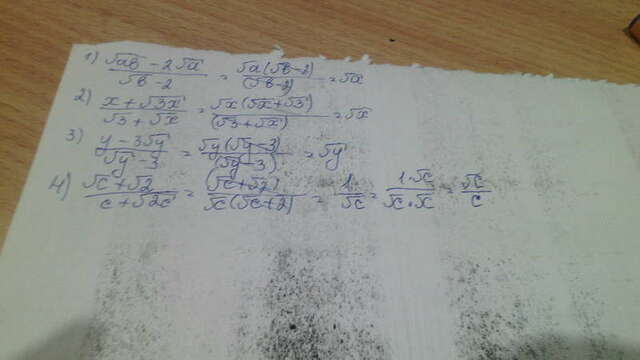 1) (√ab - 2√a)/(√b - 2) = (√a(√b - 2))/((√b - 2)) = √a
2) (x + √3x)/(√3 + √x) = (√x(√x + √3))/((√3 + √x)) = √x
3) (y - 3√y)/(√y - 3) = (√y(√y - 3))/((√y - 3)) = √y
4) (√c + √2)/(c + √2c) = ((√c + √2))/(√c(√c + 2)) = 1/√c = (1·√c)/(√c·√x) = √c/c